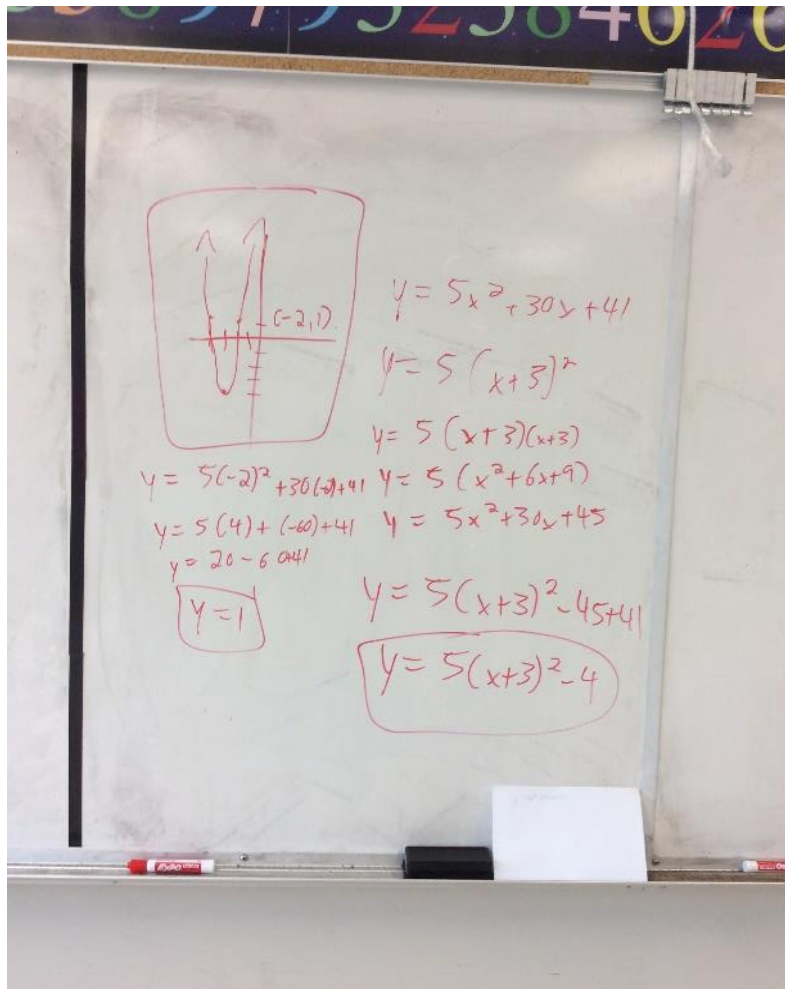 (-2,1)
y = 5x² + 30x + 41
y = 5(x+3)²
y = 5(x+3)(x+3)
y = 5(x²+6x+9)
y = 5x²+30x+45
y = 5(x+3)²-45+41
y = 5(x+3)²-4
y = 5(-2)² +30(-2)+41
y = 5(4) + (-60) +41
y = 20 - 60+41
y = 1
EXPO